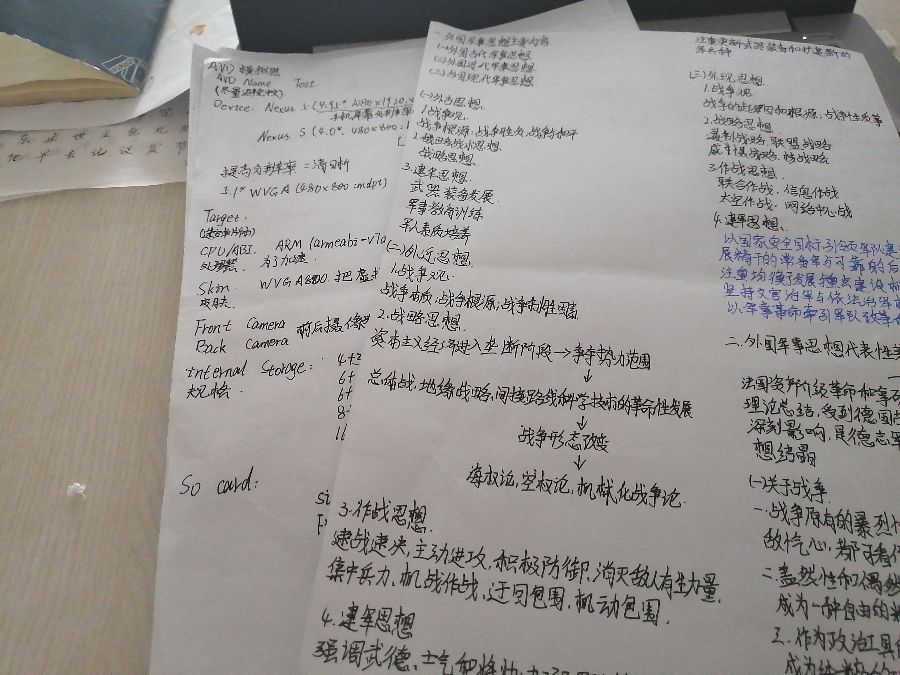 AVD 模拟器
AVD Name Test
Device: Nexus S (4.95" 1080×1920:x
Nexus S (4.0" 480×800:
提高分辨率=清晰
5.1" WVGA (480×800:mdpi)
Target.
CPU/ABI. ARM (armeabi-v7a
处理器. 为了加速.
Skin. WVGA800 把虚
皮肤.
Front Camera 前后摄像
Back Camera
internal Storage:
规格
4+
6+
6+
8
11
SD card:
一.外国军事思想主要内容
(一)外国古代军事思想
(二)外国近代军事思想
(三)外国现代军事思想
(一)外古思想.
1.战争观.
战争根源,战争性质,战争
战略思想.
3.建军思想.
武器装备发展.
军事教育训练
军人素质培养
(二)外近思想.
1.战争观.
战争本质,战争根源,战争制胜因素
2.战略思想.
资本主义经济进入垄断阶段→争夺势力范围
↓
总体战,地缘战略,间接路线和科学技术的革命性发展
↓
战争形态改变
↓
海权论,空权论,机械化战争论.
3.作战思想.
速战速决,主动进攻,积极防御,消灭敌人有生力量,
集中兵力,机战作战,迂回包围,机动包围.
4.建军思想
强调武德、士气和
注重更新武器装备和对其新的
军兵种
(三)外现思想.
1.战争观
战争的起因和根源,战争性质等
2.战略思想.
遏制战略,联盟战略
威慑战略,核战略
3.作战思想.
联合作战,信息作战
太空作战,网络中心战
4.建军思想.
以国家安全目标引领军队建
展精干的常备军与可靠的后
注重均衡发展重点建设
坚持文官治军与依法治军
以军事革命牵引军队改革
二.外国军事思想代表性
法国资产阶级革命和拿
理论总结,受到德国古
深刻影响,是德志军
想结晶
(一)关于战争.
一.战争原有的暴烈性
敌忾心,都可看作
二.盖然性和偶然
成为一种自由的
三.作为政治工具的